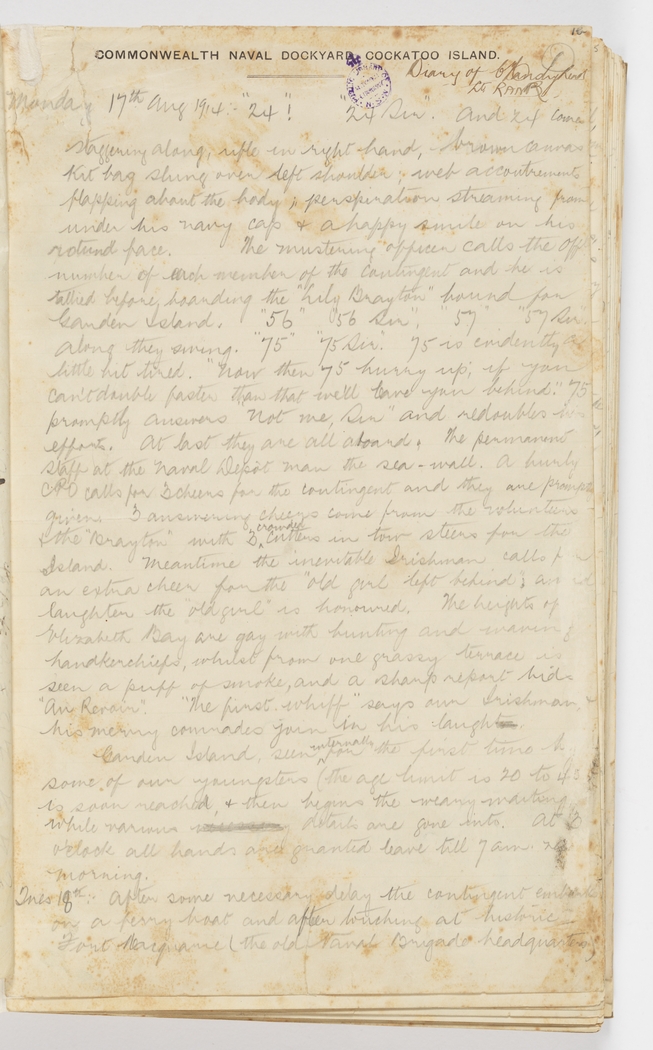 COMMONWEALTH NAVAL DOCKYARD, COCKATOO ISLAND.
Diary of
Lt RANR
Monday 17th Aug 1914. "24"! "24 Sir". And 24 comes
staggering along, rifle in right hand, brown canvas
kit bag slung over left shoulder; web accoutrements
flapping about the body; perspiration streaming from
under his navy cap & a happy smile on his
rotund face. The mustering officer calls the off
number of each member of the contingent and he is
tallied before, boarding the "Lily Brayton" bound for
Garden Island. "56" "56 Sir", "57" "57 Sir"
along they swing. "75" "75 Sir. 75 is evidently a
little bit tired. "Now then 75 hurry up; if you
can't double faster than that we'll leave you behind." 75
promptly answers "Not me, Sir" and redoubles his
efforts. At last they are all aboard. The permanent
staff at the Naval Depot man the sea-wall. A burly
CPO calls for 3 cheers for the contingent and they are promptly
given. 3 answering cheers come from the volunteers
& the "Brayton" with 3 crowded cutters in tow steers for the
Island. Meantime the inevitable Irishman calls for
an extra cheer for the "old girl left behind"; amid
laughter the "old girl" is honoured. The heights of
Elizabeth Bay are gay with bunting and waving
handkerchiefs, whilst from one grassy terrace is
seen a puff of smoke, and a sharp report bids
"Au Revoir". "The first whiff" says our Irishman, &
his merry comrades join in his laugh
Garden Island, seen internally for the first time by
some of our youngsters (the age limit is 20 to 43
is soon reached, & then begins the weary waiting
while various details are gone into. At 3
o'clock all hands are granted leave till 7 am
morning.
Tues 18th: After some necessary delay the contingent embark
on a ferry boat and after touching at historic
Fort Macquarie (the old Naval Brigade headquarters)